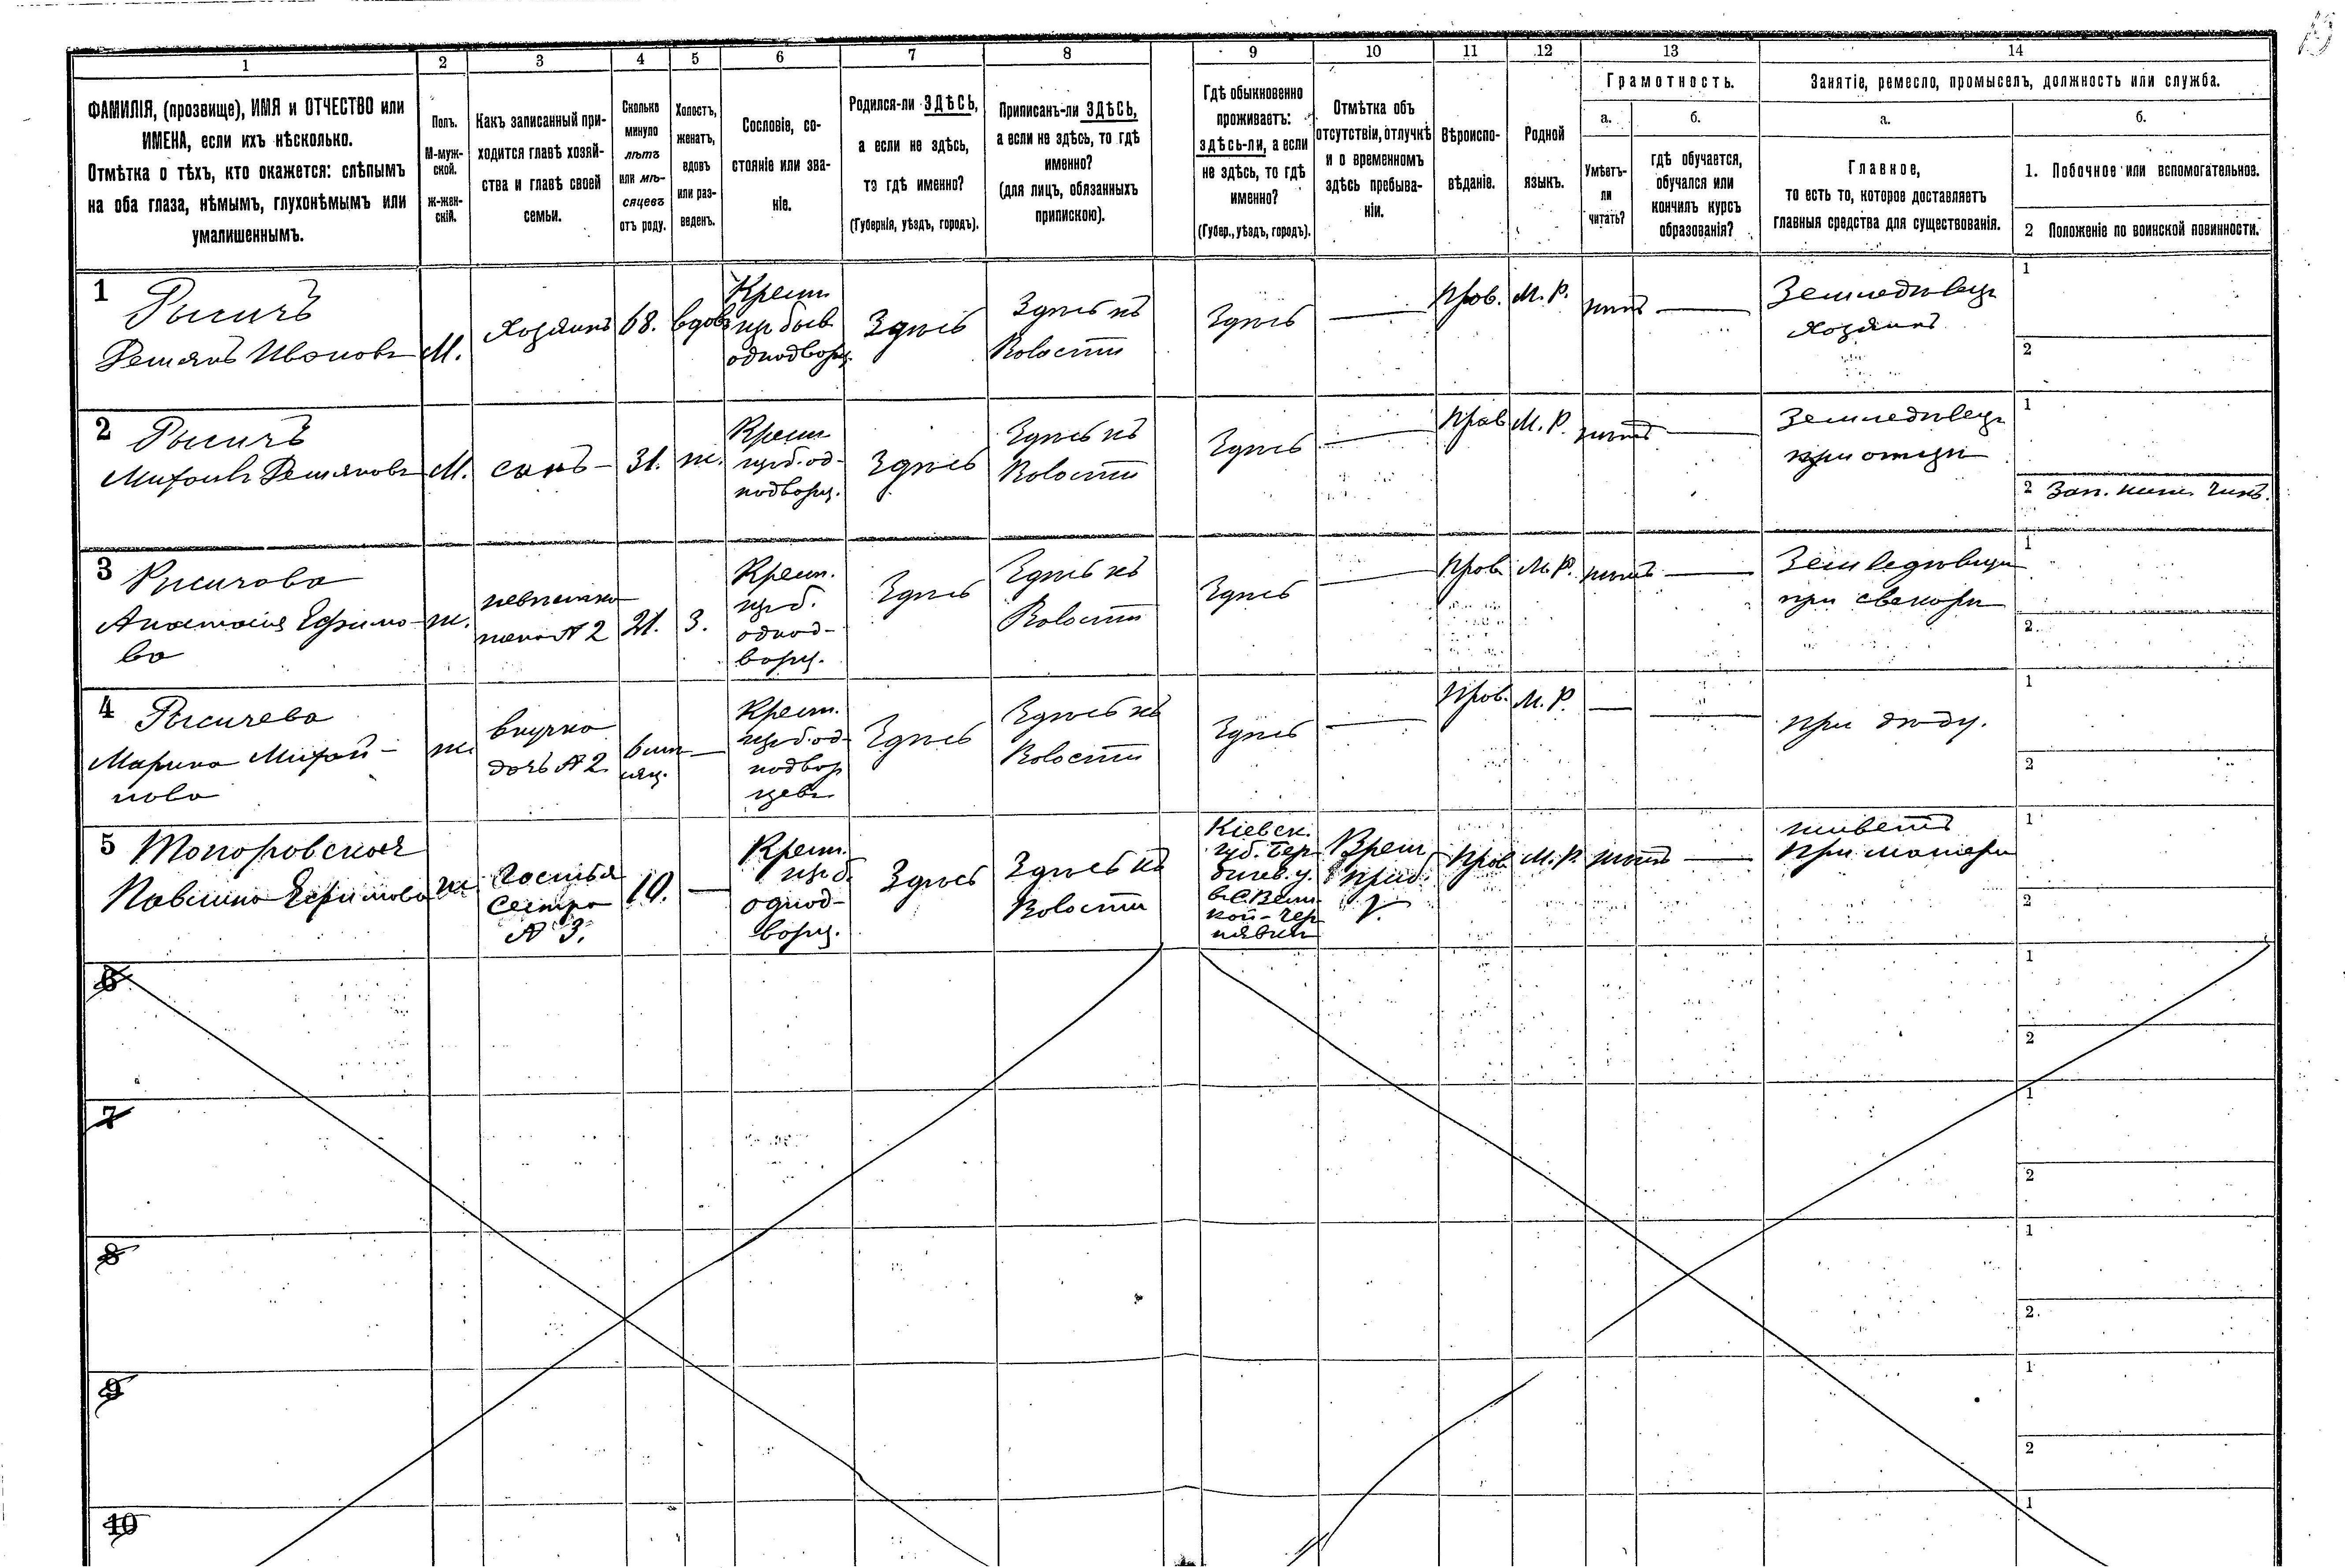 1 2 3 4 5 6 7 8 9 10 11 12 13 14
ФАМИЛІЯ, (прозвище), ИМЯ и ОТЧЕСТВО или
ИМЕНА, если ихъ нѣсколько.
Отмѣтка о тѣхъ, кто окажется: слѣпымъ
на оба глаза, нѣмымъ, глухонѣмымъ или
умалишеннымъ.
Полъ.
М-муж-
ской.
ж-жен-
скій.
Какъ записанный при-
ходится главѣ хозяй-
ства и главѣ своей
семьи.
Сколько
минуло
лѣтъ
или мѣ-
сяцевъ
отъ роду.
Холостъ,
женатъ,
вдовъ
или раз-
веденъ.
Сословіе, со-
стояніе или зва-
ніе.
Родился-ли ЗДѢСЬ,
а если не здѣсь,
то гдѣ именно?
(Губернія, уѣздъ, городъ).
Приписанъ-ли ЗДѢСЬ,
а если не здѣсь, то гдѣ
именно?
(для лицъ, обязанныхъ
припискою).
Гдѣ обыкновенно
проживаетъ:
здѣсь-ли, а если
не здѣсь, то гдѣ
именно?
(Губер., уѣздъ, городъ).
Отмѣтка объ
отсутствіи, отлучкѣ
и о временномъ
здѣсь пребыва-
ніи.
Вѣроиспо-
вѣданіе.
Родной
языкъ.
Грамотность.
а.
Умѣетъ-
ли
читать?
б.
гдѣ обучается,
обучался или
кончилъ курсъ
образованія?
Занятіе, ремесло, промыселъ, должность или служба.
а.
Главное,
то есть то, которое доставляетъ
главныя средства для существованія.
б.
1. Побочное или вспомогательное.
2 Положеніе по воинской повинности.
1
Рысичъ
Демянъ Ивановъ
М.
Хозяинъ
68.
вдовъ
Крест.
изъ быв.
однодворц.
Здѣсь
Здѣсь къ
Волости
Здѣсь
—
Прав.
М. Р.
нѣтъ
—
Земледѣлецъ
Хозяинъ
1
2
2
Рысичъ
Михаилъ Демяновъ
М.
сынъ
31.
ж.
Крест.
из б. од-
нодворц.
Здѣсь
Здѣсь къ
Волости
Здѣсь
—
Прав
М. Р.
нѣтъ
—
Земледѣлецъ
при отцѣ
1
2 Зап. ниж. чинъ.
3
Рысичова
Анастасія Ефимо-
ва
ж.
невѣстка
жена № 2
21.
З.
Крест.
из б.
однод-
ворц.
Здѣсь
Здѣсь къ
Волости
Здѣсь
—
Прав
М. Р.
нѣтъ
—
Земледѣлецъ
при свекорѣ
1
2.
4
Рысичева
Марина Михай-
лова
ж.
внучка
дочь № 2
6 мѣ-
сяц.
—
Крест.
из б. од-
нодвор
цевъ
Здѣсь
Здѣсь къ
Волости
Здѣсь
—
Прав.
М. Р.
—
—
При дѣду.
1
2
5
Топоровская
Павлина Ефимова
ж
Гостья
Сестра
№ 3.
10.
—
Крест.
из б.
однод-
ворц.
Здѣсь
Здѣсь къ
Волости
Кіевск.
губ. Бер-
дичев. у.
в С. Вели-
кой-Чер-
нявки
Врем.
преб.
Прав
М. Р.
нѣтъ
—
живетъ
При матери
1
2
6
1
2
7
1
2
8
1
2.
9
1
2
10
1